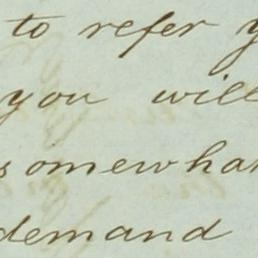 to refer y
you will
somewha
demand